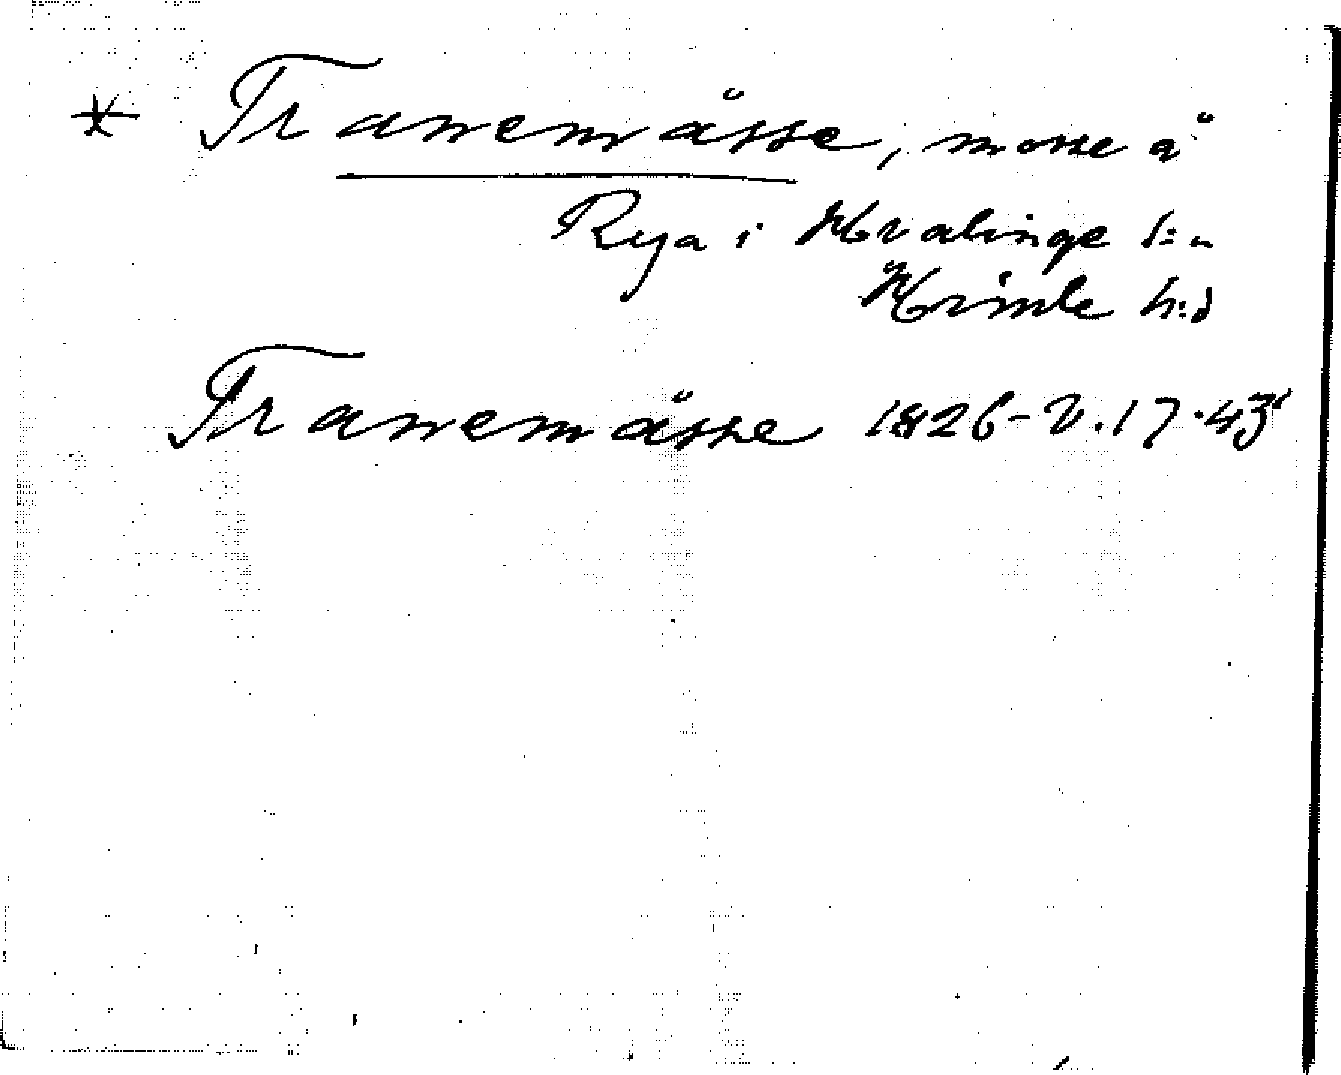 * Tranemåsse, mosse å
Rya i Hvalinge s:n
Himle h:d
Tranemåsse 1826 - V. 17.43